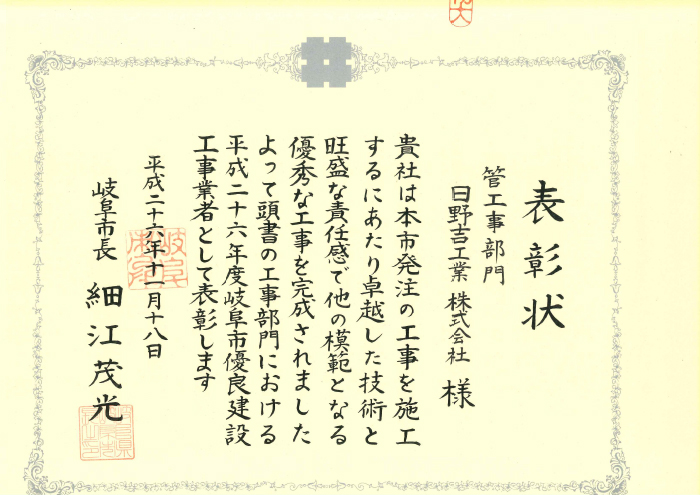 表彰状
管工事部門
日野吉工業 株式会社 様
貴社は本市発注の工事を施工
するにあたり卓越した技術と
旺盛な責任感で他の模範となる
優秀な工事を完成されました
よって頭書の工事部門における
平成二十六年度岐阜市優良建設
工事業者として表彰します
平成二十六年十一月十八日
岐阜市長 細江茂光